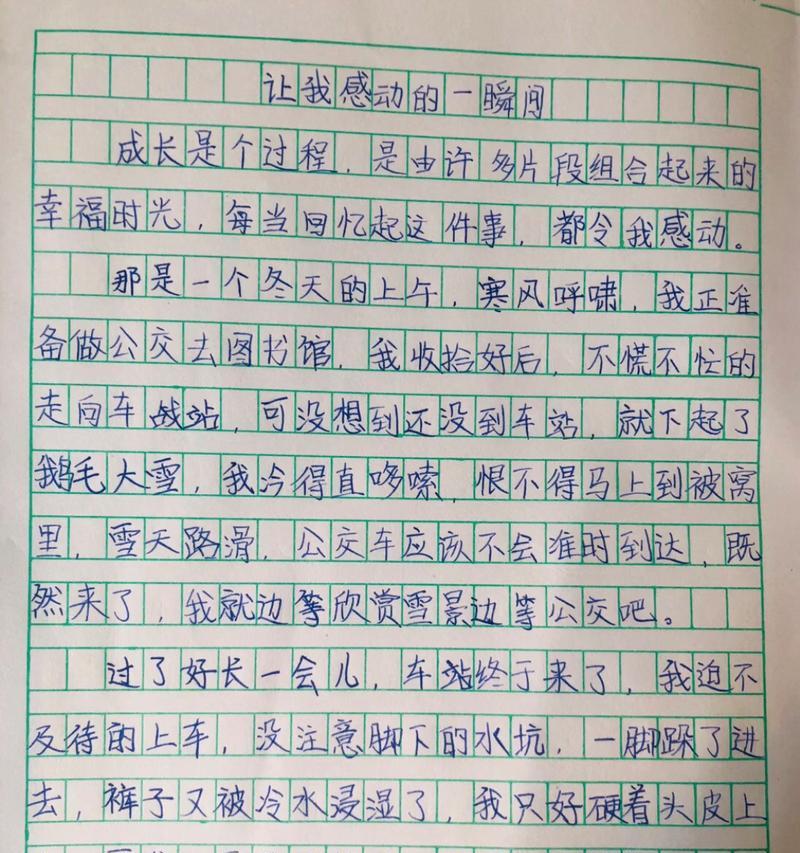 让我感动的一瞬间
成长是个过程，是由许多片段组合起来的
幸福时光，每当回忆起这件事，都令我感动。
那是一个冬天的上午，寒风呼啸，我正准
备做公交去图书馆，我收拾好后，不慌不忙的
走向车战站，可没想到还没到车站，就下起了
鹅毛大雪，我冷得直哆嗦，恨不得马上到被窝
里，雪天路滑，公交车应该不会准时到达，既
然来了，我就边等欣赏雪景边等公交吧。
过了好长一会儿，车站终于来了，我迫不
及待的上车，没注意脚下的水坑，一脚跺了进
去，裤子又被冷水浸湿了，我只好硬着头皮上